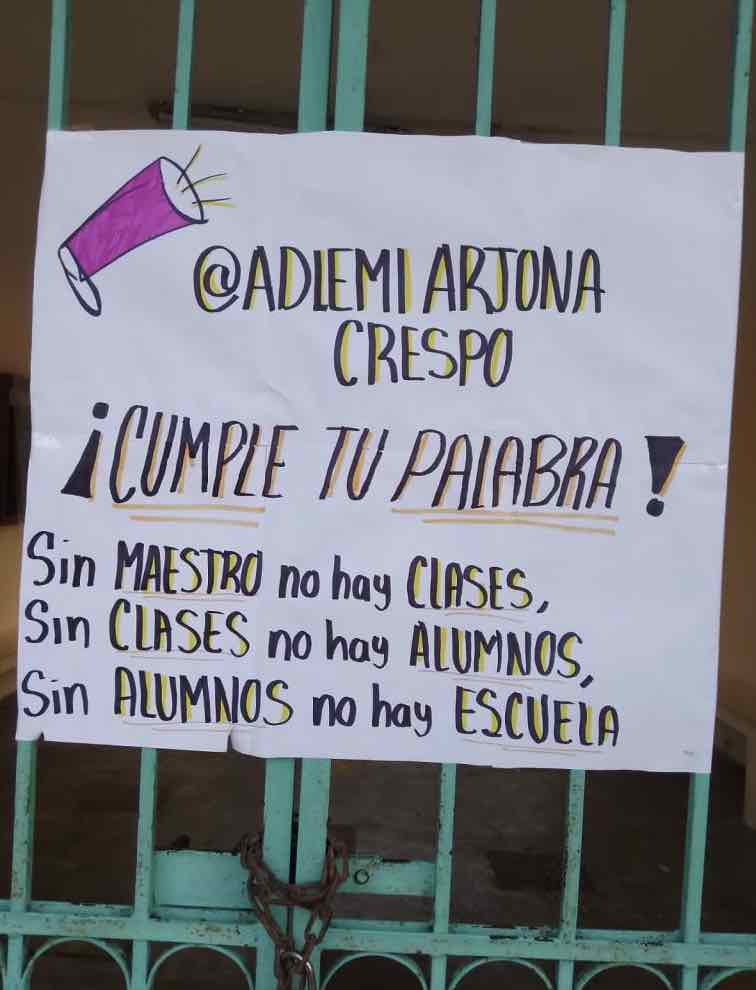 @ADLEMI ARJONA
CRESPO
¡CUMPLE TU PALABRA!
Sin MAESTRO no hay CLASES,
Sin CLASES no hay ALUMNOS,
Sin ALUMNOS no hay ESCUELA